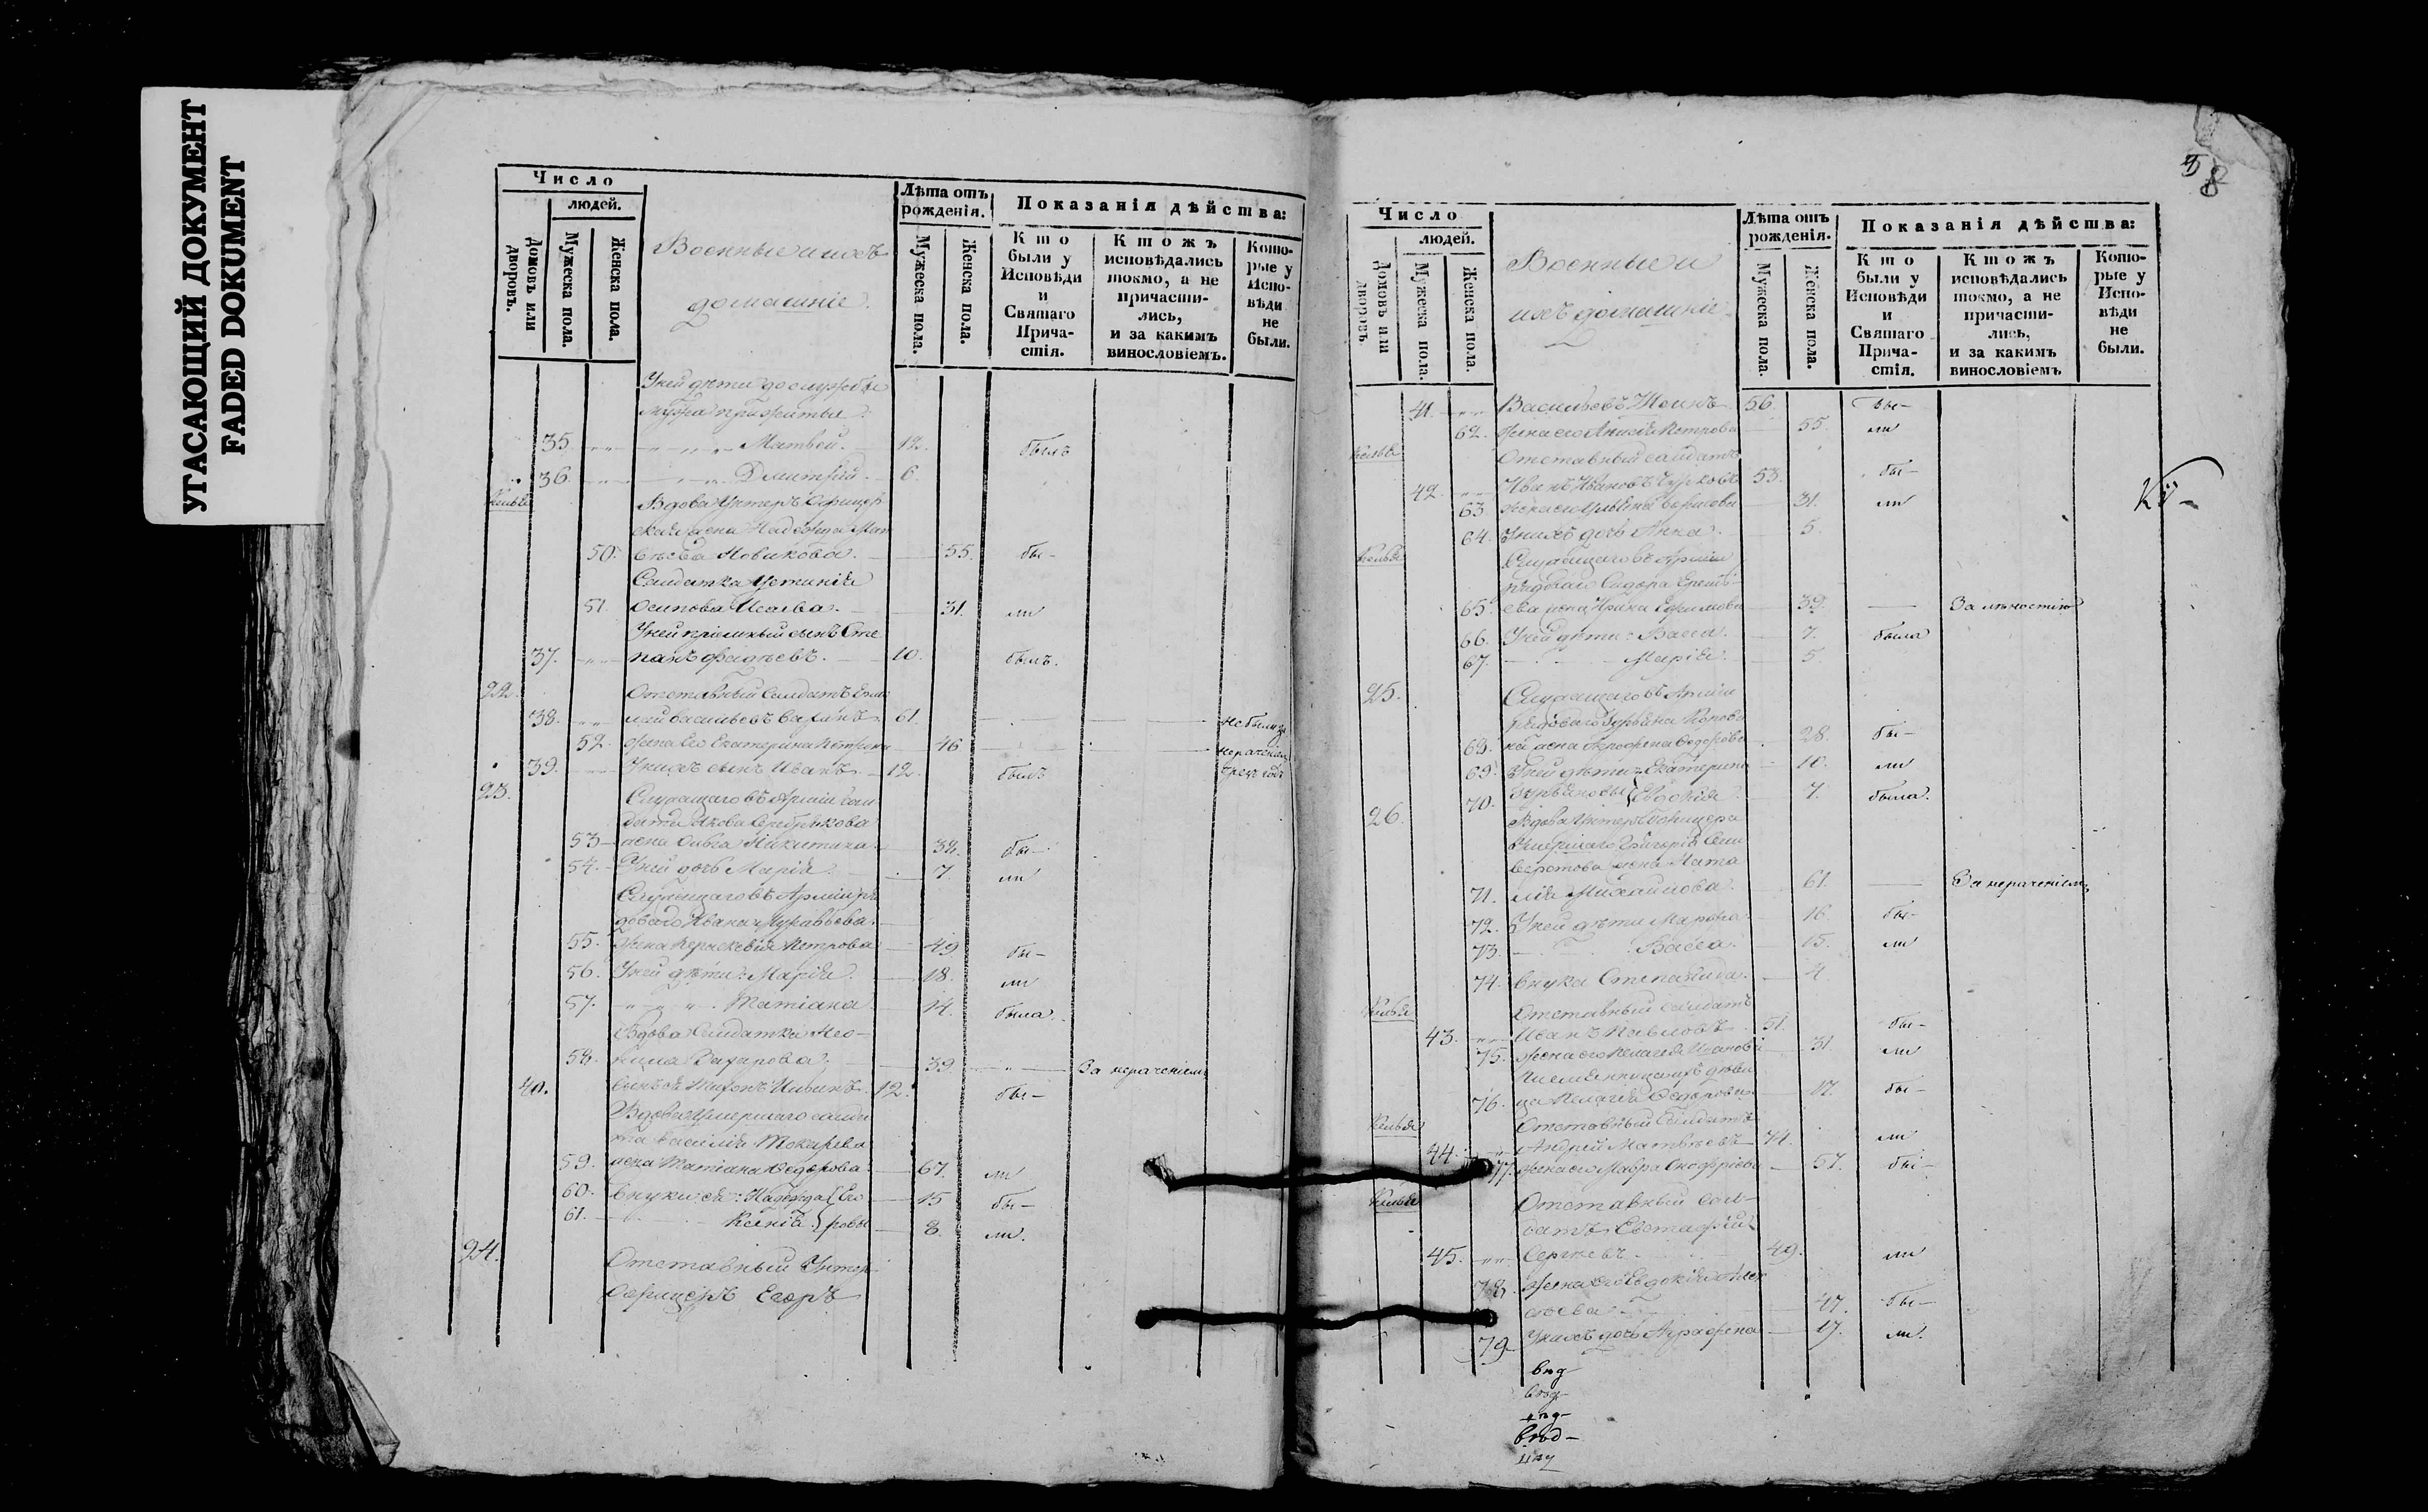 УГАСАЮЩИЙ ДОКУМЕНТ
FADED DOKUMENT
Число
людей.
Домовъ или дворовъ.
Мужеска пола.
Женска пола.
Военные и ихъ
домашніе.
Лѣта отъ рожденія.
Мужеска пола.
Женска пола.
Показанія дѣйства:
Кто были у Исповѣди и Святаго Прича-стія.
Ктожъ исповѣдались токмо, а не причасти-лись, и за какимъ винословіемъ.
Кото-рые у Испо-вѣди не были.
У ней дѣти до службы
мужа прижитые:
35. Матвей. 12. былъ
36. Дмитрій. 6.
Келья Вдова Унтеръ Офицер
ская жена Надежда Мат
50. вѣева Новикова. 55. бы-
Солдатка Устинія
51. Осипова Исаева. 31. ли
У ней пріемный сынъ Сте
37. панъ Фадѣевъ. 10. былъ.
22. Отставный Солдатъ Ермо
38. лай Васильевъ 61. не были за
52. Жена Его Екатерина Петрова 46 нераченіем
39. У нихъ сынъ Иванъ 12. былъ
23. Служащаго въ Арміи сол
дата Якова Серебрякова
53 жена Ольга Никитина 32. бы-
54. У ней дочь Марія. 7. ли
Служащаго въ Арміи ря
доваго Ивана Журавьева.
55. Жена Переcкевія Петрова 49 бы-
56. У ней дѣти: Марія. 18. ли
57. Татіана 14. была.
Вдова Солдатка Нео-
58. нила Захарова. 39. За нераченіемъ
40. сынъ ея Тихонъ Ильинъ 12. бы-
Вдова Умершаго солда
та Василія Токарева
59. жена Татіана Федорова. 67. ли
60. внуки ея: Надежда Его 15 бы-
61. Ксенія ровы 8. ли.
24. Отставный Унтер
Офицеръ Егоръ
8
Число
людей.
Домовъ или дворовъ.
Мужеска пола.
Женска пола.
Военные и
ихъ домашніе.
Лѣта отъ рожденія.
Мужеска пола.
Женска пола.
Показанія дѣйства:
Кто были у Исповѣди и Святаго Прича-стія.
Ктожъ исповѣдались токмо, а не причасти-лись, и за какимъ винословіемъ
Кото-рые у Испо-вѣди не были.
41. Васильевъ 56. бы-
62. Жена его Анисія Петрова 55. ли
Келья Отставный солдатъ
42. Иванъ Ивановъ 53. бы-
63. Жена его 31. ли
64. У нихъ дочь Анна. 5.
Келья Служащаго въ Арміи
рядоваго Сидора Еремѣ-
65. ева жена Ирина Ефимова 39. За лѣностію
66. У ней дѣти: Васса. 7. была
67. Марія. 5.
25. Служащаго въ Арміи
рядоваго Гурьяна
68. жена Федорова 28. бы-
69. У ней дѣти Екатерина 10. ли
70. Гурьяновы Евдокія 7. была.
26. Вдова Унтеръ Офицера
Умершаго Григорія Сели
верстова жена Ната
71. лія Михайлова. 61. За нераченіемъ
72. У ней дѣти Марфа 16. бы-
73. Васса. 15. ли
74. внука Степанида. 4.
Келья Отставный солдатъ
43. Иванъ Павловъ 51. бы-
75. Жена его Пелагея Иванова 31. ли
Племянница ихъ дѣви
76. ца Пелагея Федорова 17. бы-
Келья Отставный Солдатъ
44. Андрей Матвѣевъ 74. ли
77. Жена его Мавра Онофріева 57. бы-
Келья Отставный сол-
датъ Евстафій
45. Сергѣевъ 49. ли
78. Жена его Евдокія Алек
сѣева 47. бы-
79. У нихъ дочь Аграфена 17. ли.